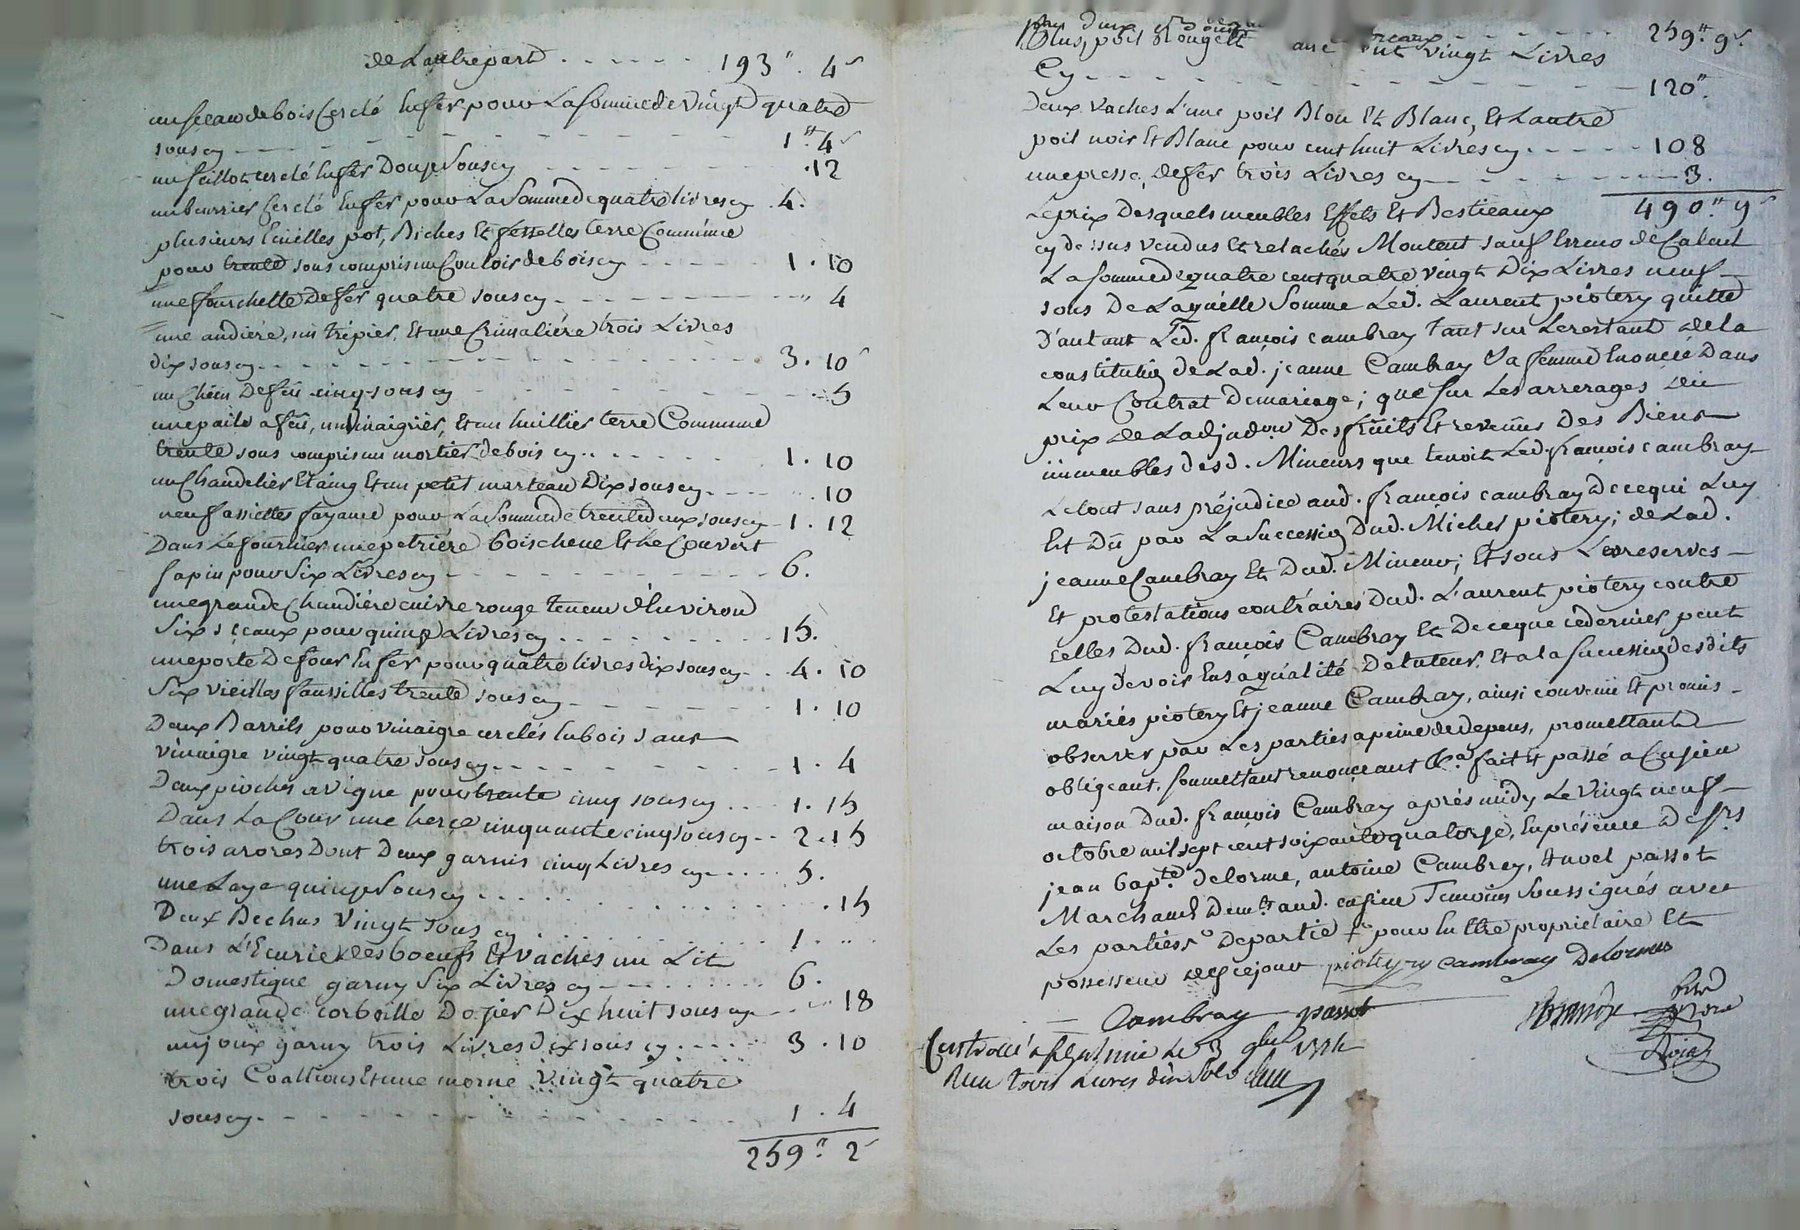 de Lautrepard . . . . . . 193 ". 4 s
un seceau de bois Cerclé En fer pour La somme de vingt quatre
sous cy - - - - - - 1 " 4 s
un seillot cerclé En fer Douze Sous cy - - - - .12
un beurrier Cerclé En fer pour La Somme de quatre livres cy . 4 .
plusieurs Ecuelles pot, Biches Et fesselles terre Commune
pour trente sous compris un Couloir de bois cy - - - - 1 . 10
une fourchette De fer quatre sous cy - - - - " 4
une andiere, un trépier, Et une Crimaliére trois Livres
dix sous cy - - - - - - 3 . 10 s
un Chien De feu cinq sous cy - - - - 5
une paile a feu, un Vinaigrier, Et un huillier terre Commune
trente sous compris un mortier de bois cy . . - - - 1 . 10
un Chandelier Etaing Et un petit marteau Dix sous cy . - - - . 10
neuf assiettes fayance pour La Somme de trente deux sous cy - 1 . 12
Dans Le fournier une petriere bois chene Et Le Couvert
sapin pour Six Livres cy - - - - - - 6 .
une grande Chaudiére cuivre rouge teneur d'Environ
Six seeaux pour quinze Livres cy . . . . . . . 15 .
une porte De four En fer pour quatre livres dix sous cy - . 4 . 10
Six vieilles faussilles trente sous cy - - - - - - 1 . 10
Deux Barrils pour vinaigre cerclés En bois sans
vinaigre vingt quatre sous cy - - - - - - 1 . 4
Deux pioches a vigne pour trente cinq sous cy . . . 1 . 15
Dans La Cour une herce cinquante cinq sous cy - - 2 . 15
trois arores Dont Deux garnis cinq Livres cy - . . . . 5 .
une Laye quinze Sous cy . . . . . . . 15
Deux Bechus Vingt sous cy . . . . . . 1 . "
Dans L'Ecurie des boeufs Et vaches un Lit
Domestique garny Six Livres cy - - . . . . 6 .
une grande corbeille Dozier Dix huit sous cy - - " 18
un joux garny trois Livres Dix sous cy . . . . . 3 . 10
trois Coallions Et une morne vingt quatre
sous cy - - - - - - 1 . 4
259 ". 2 s
259 " 9 s
Plus, poil Rouget vingt Livres
Cy - - - - - - 120 "
Deux vaches L'une poil Blou Et Blanc, Et Lautre
poil noir Et Blanc pour cent huit Livres cy . - - - - 108
une presse, de fer trois Livres cy - - - - 3 .
Le prix Desquels meubles Effets Et Bestieaux 490 " 9 s
cy dessus vendus Et relachés Montent sauf Erreur de Calcul
La somme de quatre cent quatre vingt Dix Livres neuf -
sous De Laquelle Somme Led. Laurent piotery quitte
D'autant Led. françois cambray tant sur Le restant de la
constitution de Lad. jeanne Cambray Sa femme Enoncée Dans
Leur Contrat De mariage ; que sur Les arrerages du
prix de Ladjudon. Des fruits Et revenus Des Biens
immeubles desd. Mineurs que tenoit Led. françois cambray -
Le tout sans préjudice aud. françois cambray De ce qui Luy
Est Dû par La Succession Dud. Michel piotery ; de Lad.
jeanne Cambray Et Dud. Mineur ; Et sous Les reserves -
Et protestations contraires Dud. Laurent piotery contre
celles Dud. françois Cambray Et De ce que ce dernier peut
Luy devoir En sa qualité De tuteur, Et a la succession desdits
mariés piotery Et jeanne Cambray, ainsi convenu Et promis -
observer par Les parties a peine de depens, promettant
obligeant, soumettant renonceant &a. fait Et passé a Cusieu
maison Dud. françois Cambray aprés midy Le vingt neuf -
octobre mil sept cent soixante quatorze, En présence De srs
jean bapte. Delorme, antoine Cambray, Et noel passot
Marchand Demts. aud. cusieu Temoins Soussignés avec
Les parties De partie pour En Etre proprietaire Et
possesseur des ce jour piotery cambray Delorme
Cambray passot
Controllé a le 3 9bre 1774
Reçu trois Livres dix Sols